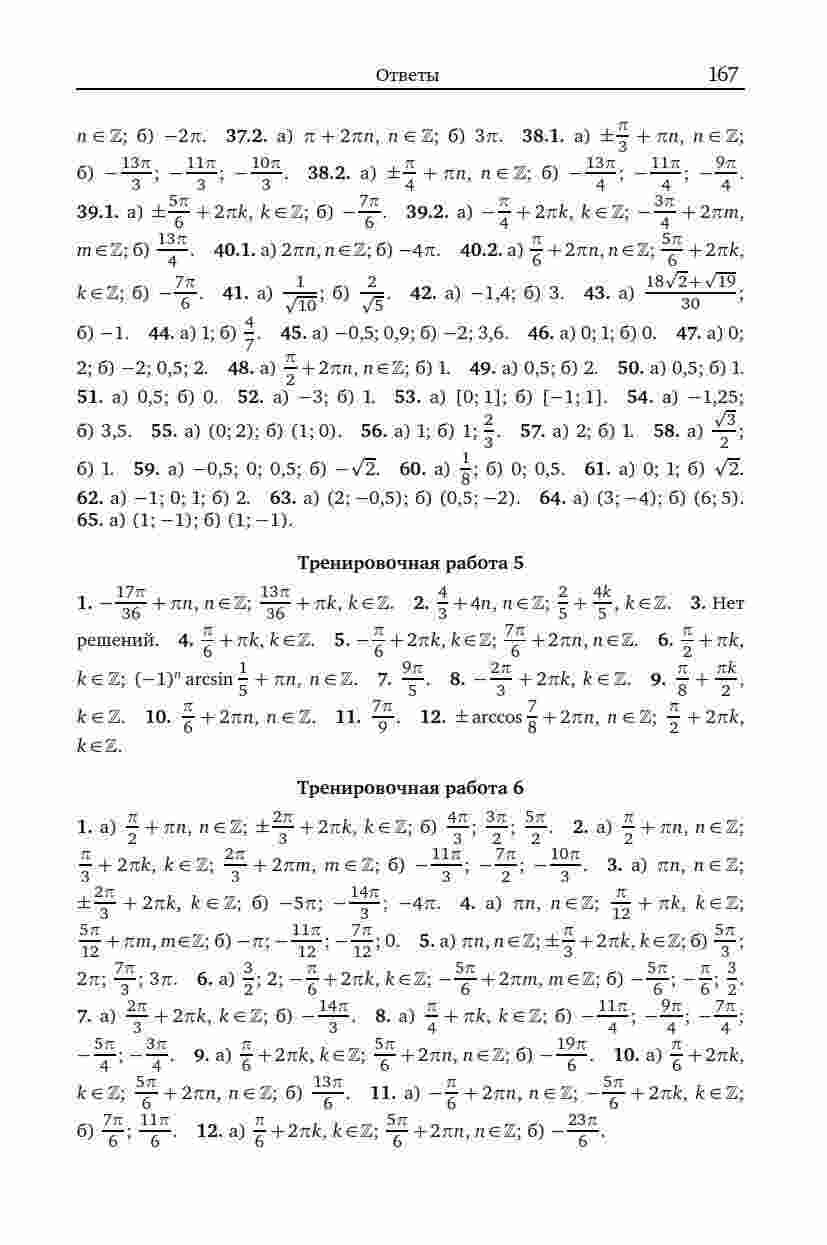 Ответы 167
n ∈ ℤ; б) −2π. 37.2. а) π + 2πn, n ∈ ℤ; б) 3π. 38.1. а) ±π/3 + πn, n ∈ ℤ;
б) −13π/3; −11π/3; −10π/3. 38.2. а) ±π/4 + πn, n ∈ ℤ; б) −13π/4; −11π/4; −9π/4.
39.1. а) ±5π/6 + 2πk, k ∈ ℤ; б) −7π/6. 39.2. а) −π/4 + 2πk, k ∈ ℤ; −3π/4 + 2πm,
m ∈ ℤ; б) 13π/4. 40.1. а) 2πn, n ∈ ℤ; б) −4π. 40.2. а) π/6 + 2πn, n ∈ ℤ; 5π/6 + 2πk,
k ∈ ℤ; б) −7π/6. 41. а) 1/√10; б) 2/√5. 42. а) −1,4; б) 3. 43. а) (18√2+√19)/30;
б) −1. 44. а) 1; б) 4/7. 45. а) −0,5; 0,9; б) −2; 3,6. 46. а) 0; 1; б) 0. 47. а) 0;
2; б) −2; 0,5; 2. 48. а) π/2 + 2πn, n ∈ ℤ; б) 1. 49. а) 0,5; б) 2. 50. а) 0,5; б) 1.
51. а) 0,5; б) 0. 52. а) −3; б) 1. 53. а) [0; 1]; б) [−1; 1]. 54. а) −1,25;
б) 3,5. 55. а) (0; 2); б) (1; 0). 56. а) 1; б) 1; 2/3. 57. а) 2; б) 1. 58. а) √3/2;
б) 1. 59. а) −0,5; 0; 0,5; б) −√2. 60. а) 1/8; б) 0; 0,5. 61. а) 0; 1; б) √2.
62. а) −1; 0; 1; б) 2. 63. а) (2; −0,5); б) (0,5; −2). 64. а) (3; −4); б) (6; 5).
65. а) (1; −1); б) (1; −1).
Тренировочная работа 5
1. −17π/36 + πn, n ∈ ℤ; 13π/36 + πk, k ∈ ℤ. 2. 4/3 + 4n, n ∈ ℤ; 2/5 + 4k/5, k ∈ ℤ. 3. Нет
решений. 4. π/6 + πk, k ∈ ℤ. 5. −π/6 + 2πk, k ∈ ℤ; 7π/6 + 2πn, n ∈ ℤ. 6. π/2 + πk,
k ∈ ℤ; (−1)ⁿ arcsin 1/5 + πn, n ∈ ℤ. 7. 9π/5. 8. −2π/3 + 2πk, k ∈ ℤ. 9. π/8 + πk/2,
k ∈ ℤ. 10. π/6 + 2πn, n ∈ ℤ. 11. 7π/9. 12. ± arccos 7/8 + 2πn, n ∈ ℤ; π/2 + 2πk,
k ∈ ℤ.
Тренировочная работа 6
1. а) π/2 + πn, n ∈ ℤ; ±2π/3 + 2πk, k ∈ ℤ; б) 4π/3; 3π/2; 5π/2. 2. а) π/2 + πn, n ∈ ℤ;
π/3 + 2πk, k ∈ ℤ; 2π/3 + 2πm, m ∈ ℤ; б) −11π/3; −7π/2; −10π/3. 3. а) πn, n ∈ ℤ;
±2π/3 + 2πk, k ∈ ℤ; б) −5π; −14π/3; −4π. 4. а) πn, n ∈ ℤ; π/12 + πk, k ∈ ℤ;
5π/12 + πm, m ∈ ℤ; б) −π; −11π/12; −7π/12; 0. 5. а) πn, n ∈ ℤ; ±π/3 + 2πk, k ∈ ℤ; б) 5π/3;
2π; 7π/3; 3π. 6. а) 3/2; 2; −π/6 + 2πk, k ∈ ℤ; −5π/6 + 2πm, m ∈ ℤ; б) −5π/6; −π/6; 3/2.
7. а) 2π/3 + 2πk, k ∈ ℤ; б) −14π/3. 8. а) π/4 + πk, k ∈ ℤ; б) −11π/4; −9π/4; −7π/4;
−5π/4; −3π/4. 9. а) π/6 + 2πk, k ∈ ℤ; 5π/6 + 2πn, n ∈ ℤ; б) −19π/6. 10. а) π/6 + 2πk,
k ∈ ℤ; 5π/6 + 2πn, n ∈ ℤ; б) 13π/6. 11. а) −π/6 + 2πn, n ∈ ℤ; −5π/6 + 2πk, k ∈ ℤ;
б) 7π/6; 11π/6. 12. а) π/6 + 2πk, k ∈ ℤ; 5π/6 + 2πn, n ∈ ℤ; б) −23π/6.